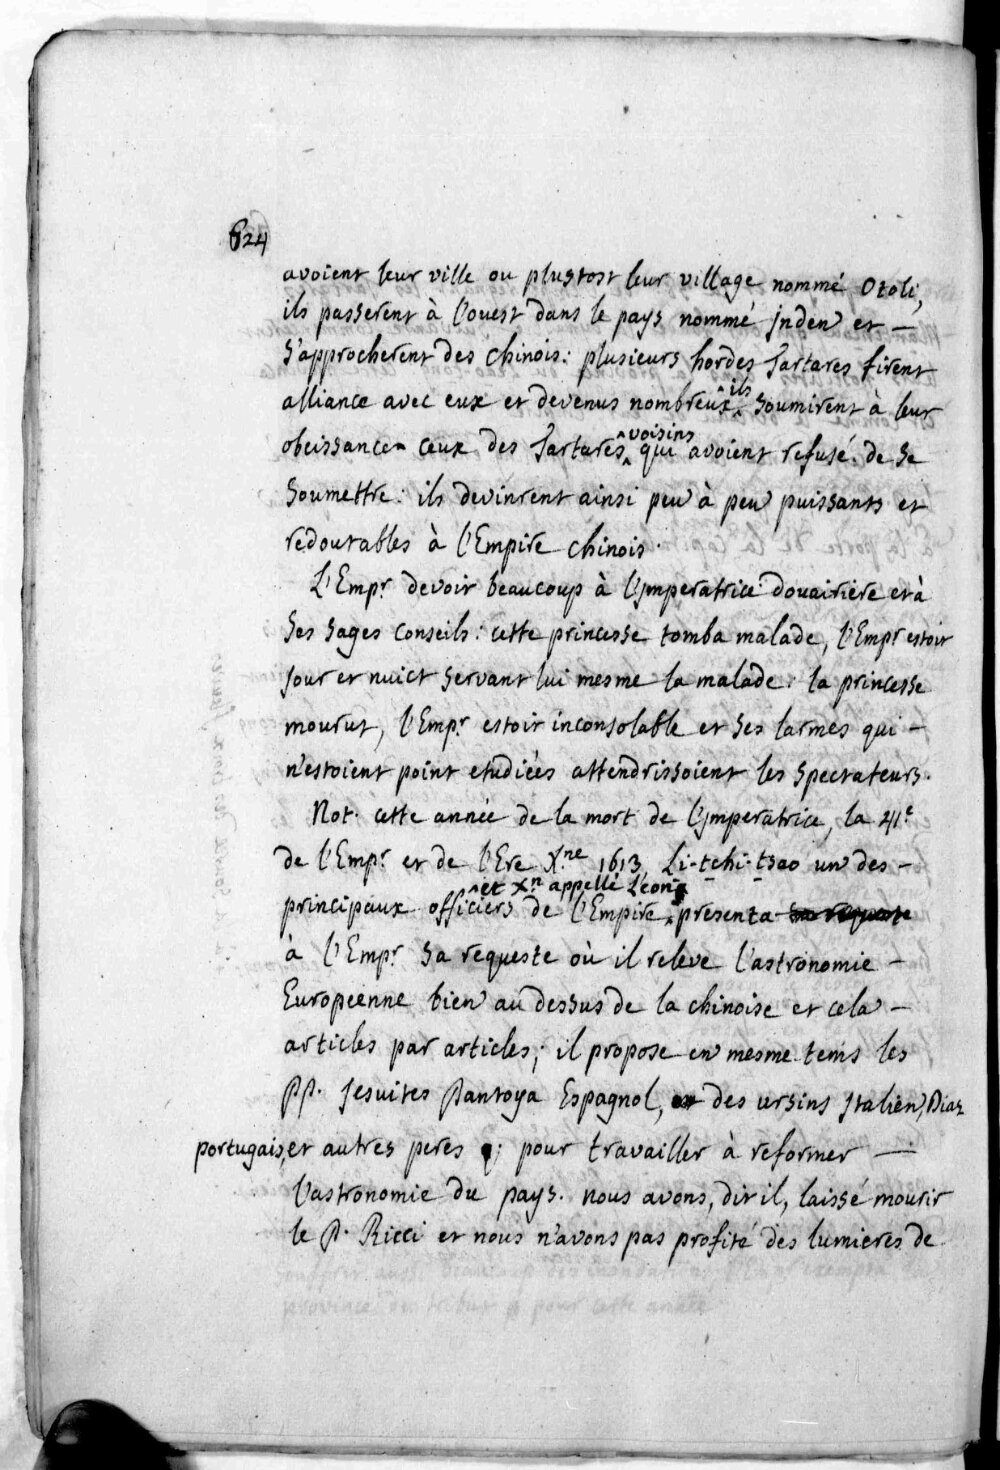 624
avoient leur ville ou plustost leur village nommé Otoli,
ils passerent à l'ouest dans le pays nommé jnden et —
s'approcherent des chinois: plusieurs hordes Tartares firent
alliance avec eux et devenus nombreux ^ils soumirent à leur
obeissance ceux des Tartares ^voisins qui avoient refusé de se
soumettre: ils devinrent ainsi peu à peu puissants et
redoutables à l'Empire chinois.
L'Empr. devoit beaucoup à l'jmperatrice douairiere et à
ses sages conseils: cette princesse tomba malade, l'Empr. estoit
jour et nuict servant lui mesme la malade: la princesse
mourut, l'Empr. estoit inconsolable et ses larmes qui –
n'estoient point etudiées attendrissoient les spectateurs.
Not. cette année de la mort de l'jmperatrice, la 41e
de l'Empr. et de l'Ere Xne 1613 Li-tchi-tsao un des –
et Xn appellé Leon
principaux officiers de l'Empire, presenta sa requeste
à l'Empr. sa requeste où il releve l'astronomie –
Européenne bien au dessus de la chinoise et cela –
articles par articles; il propose en mesme tems les
PP. Jesuites Pantoya Espagnol, des ursins Jtalien, Diaz
portugais, et autres peres pour travailler à reformer —
l'astronomie du pays. nous avons, dit il, laissé mourir
le P. Ricci et nous n'avons pas profité des lumieres de